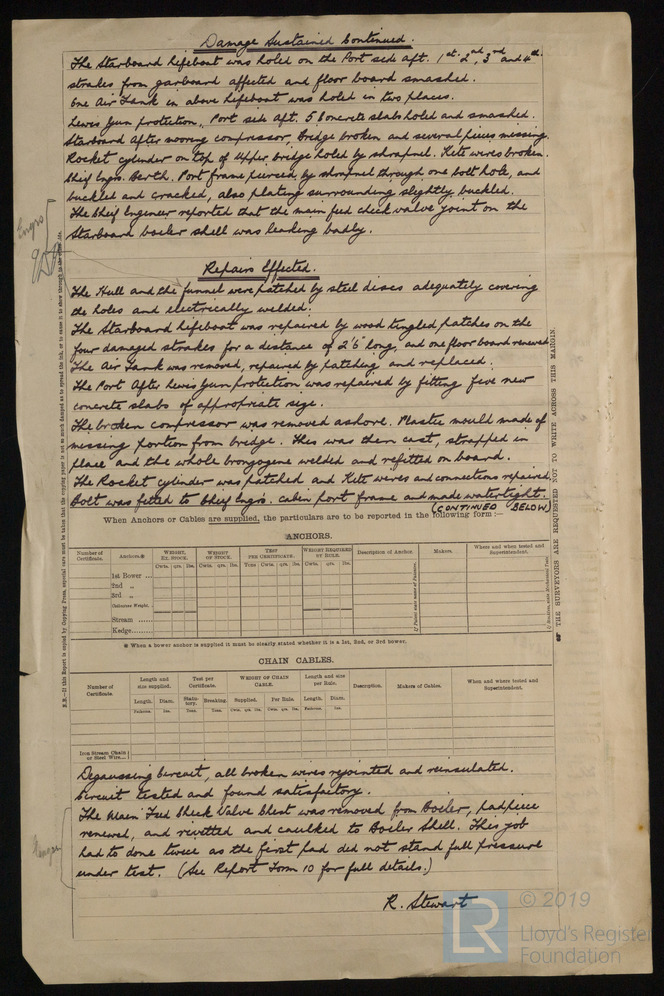 Damage Sustained Continued.
The Starboard Lifeboat was holed on the Port side aft. 1st. 2nd. 3rd and 4th.
strakes from garboard affected and floor board smashed.
One Air Tank in above lifeboat was holed in two places.
Lewis Gun protection, Port side Aft. 5 Concrete slabs holed and smashed.
Starboard after mooring compressor, Bridge broken and several pieces missing.
Rocket cylinder on top of Upper bridge holed by shrapnel. Kite wires broken.
Chief Engrs. Berth. Port frame pierced by shrapnel through one bolt hole, and
buckled and cracked, also plating surrounding slightly buckled.
The Chief Engineer reported that the main feed check valve joint on the
Starboard boiler shell was leaking badly.
Engrs
Repairs Effected.
The Hull and the funnel were patched by steel discs adequately covering
the holes and electrically welded.
The Starboard Lifeboat was repaired by wood tingled patches on the
four damaged strakes for a distance of 2'6" long, and one floor board renewed.
The Air Tank was removed, repaired by patching and replaced.
The Port After Lewis Gun protection was repaired by fitting five new
concrete slabs of appropriate size.
The broken compressor was removed ashore. Plastic mould made of
missing portion from bridge. This was then cast, strapped in
place and the whole bronzogene welded and refitted on board.
The Rocket cylinder was patched and Kite wires and connections repaired.
Bolt was fitted to Chief Engrs. cabin port frame and made watertight.
(CONTINUED BELOW)
When Anchors or Cables are supplied, the particulars are to be reported in the following form :—
ANCHORS.
Number of Certificate. Anchors.* WEIGHT, EX. STOCK. WEIGHT OF STOCK. TEST PER CERTIFICATE. WEIGHT REQUIRED BY RULE. Description of Anchor. Makers. Where and when tested and Superintendent.
Cwts. qrs. lbs. Cwts. qrs. lbs. Tons Cwts. qrs. lbs. Cwts. qrs. lbs.
1st Bower ...
2nd „
3rd „
Collective Weight.
Stream ......
Kedge......
* When a bower anchor is supplied it must be clearly stated whether it is a 1st, 2nd, or 3rd bower.
CHAIN CABLES.
Number of Certificate. Length and size supplied. Test per Certificate. WEIGHT OF CHAIN CABLE. Length and size per Rule. Description. Makers of Cables. When and where tested and Superintendent.
Length. Diam. Statutory. Breaking. Supplied. Per Rule. Length. Diam.
Fathoms. Ins. Tons. Tons. Cwts. qrs. lbs. Cwts. qrs. lbs. Fathoms. Ins.
Iron Stream Chain or Steel Wire...
Degaussing Circuit, all broken wires rejointed and reinsulated.
Circuit tested and found satisfactory.
The Main Feed Check Valve Chest was removed from Boiler, padpiece
renewed, and rivetted and caulked to Boiler Shell. This job
had to done twice as the first pad did not stand full pressure
under test. (See Report Form 10 for full details.)
R. Stewart
THE SURVEYORS ARE REQUESTED NOT TO WRITE ACROSS THIS MARGIN.
LR
© 2019
Lloyd's Register
Foundation